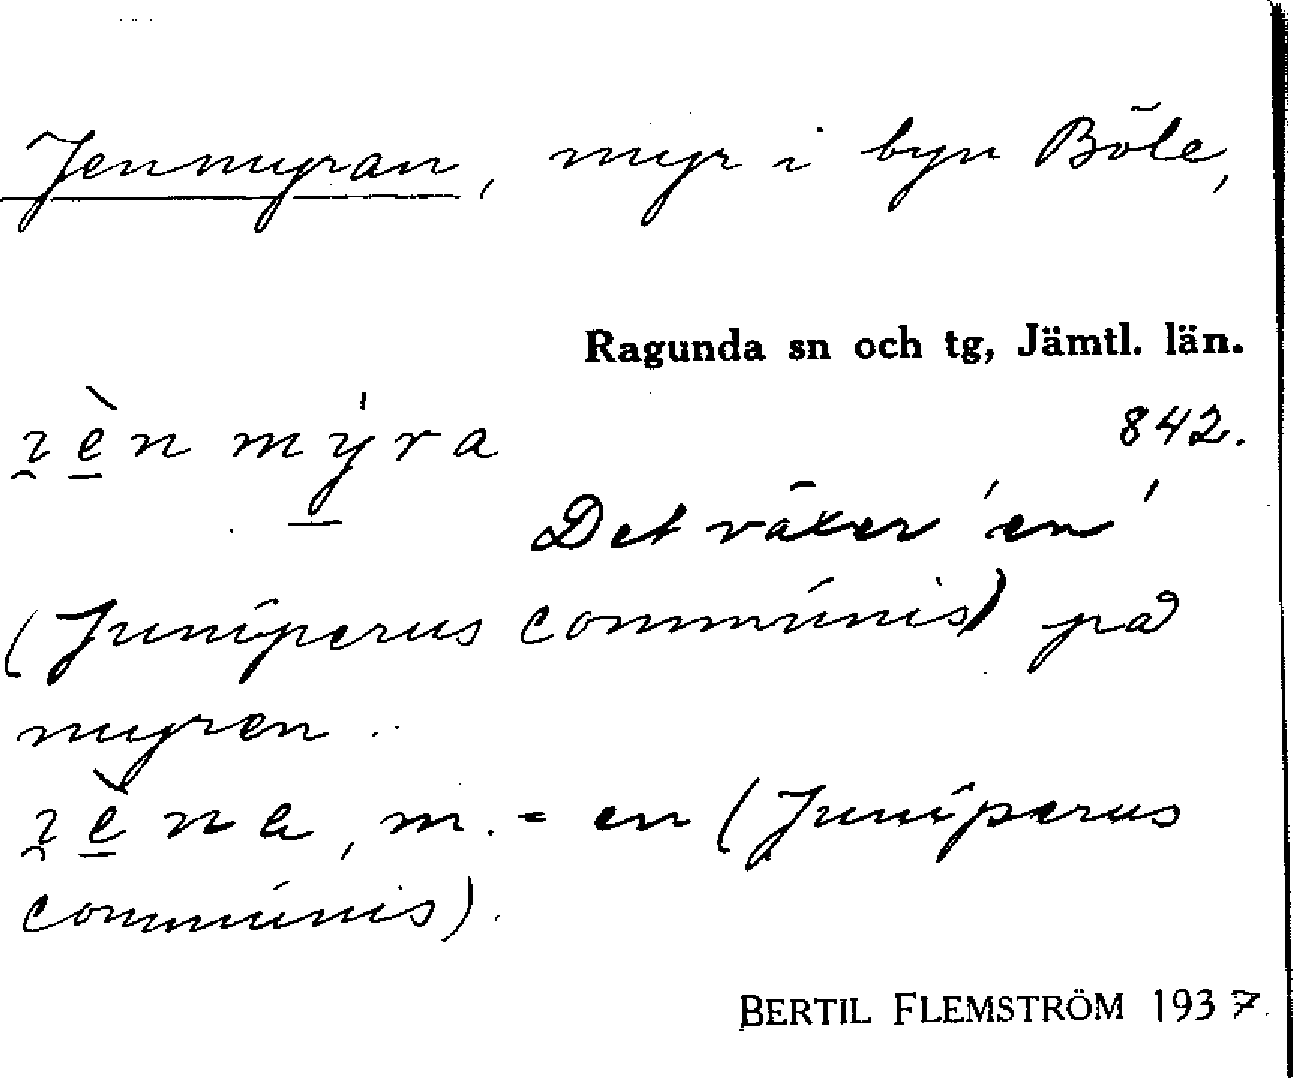 Jenmyran, myr i byn Böle,
Ragunda sn och tg, Jämtl. län.
842.
Det växer 'en'
(Juníperus commúnis) på
myren.
m. = en (Juníperus
commúnis).
BERTIL FLEMSTRÖM 1937